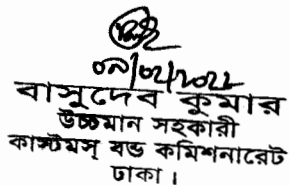 ০৯/০২/২০২২
বাসুদেব কুমার
উচ্চমান সহকারী
কাস্টমস্ বন্ড কমিশনারেট
ঢাকা।